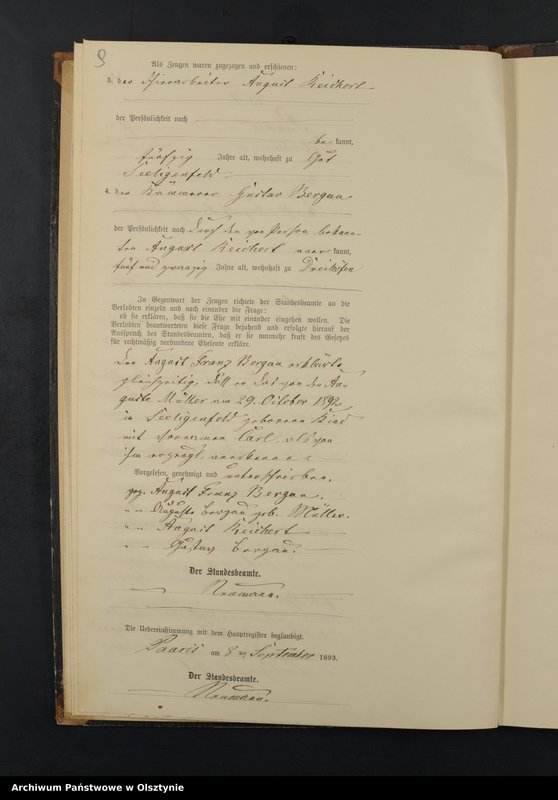 9
Als Zeugen waren zugezogen und erschienen:
3. der August Reichert
der Persönlichkeit nach
be kannt,
fünfzig Jahre alt, wohnhaft zu Gut
Seeligenfeld
4. der Kämmerer Gustav Bergau
der Persönlichkeit nach durch den von Person bekann-
ten August Reichert kannt,
fünf und zwanzig Jahre alt, wohnhaft zu Dreihöfen
In Gegenwart der Zeugen richtete der Standesbeamte an die
Verlobten einzeln und nach einander die Frage:
ob sie erklären, daß sie die Ehe mit einander eingehen wollen. Die
Verlobten beantworteten diese Frage bejahend und erfolgte hierauf der
Ausspruch des Standesbeamten, daß er sie nunmehr kraft des Gesetzes
für rechtmäßig verbundene Eheleute erkläre.
Der August Franz Bergau erklärte
gleichzeitig, daß er das von der Au-
guste Müller am 29. October 1892
in Seeligenfeld geborene Kind
mit Vornamen Carl, als von
ihm erzeugt, anerkenne.
Vorgelesen, genehmigt und unterschrieben.
gez. August Franz Bergau.
" " Auguste Bergau geb. Müller.
" " August Reichert
" " Gustav Bergau.
Der Standesbeamte.
Neumann.
Die Uebereinstimmung mit dem Hauptregister beglaubigt.
Paaris am 8 ten September 1893.
Der Standesbeamte.
Neumann.
Archiwum Państwowe w Olsztynie